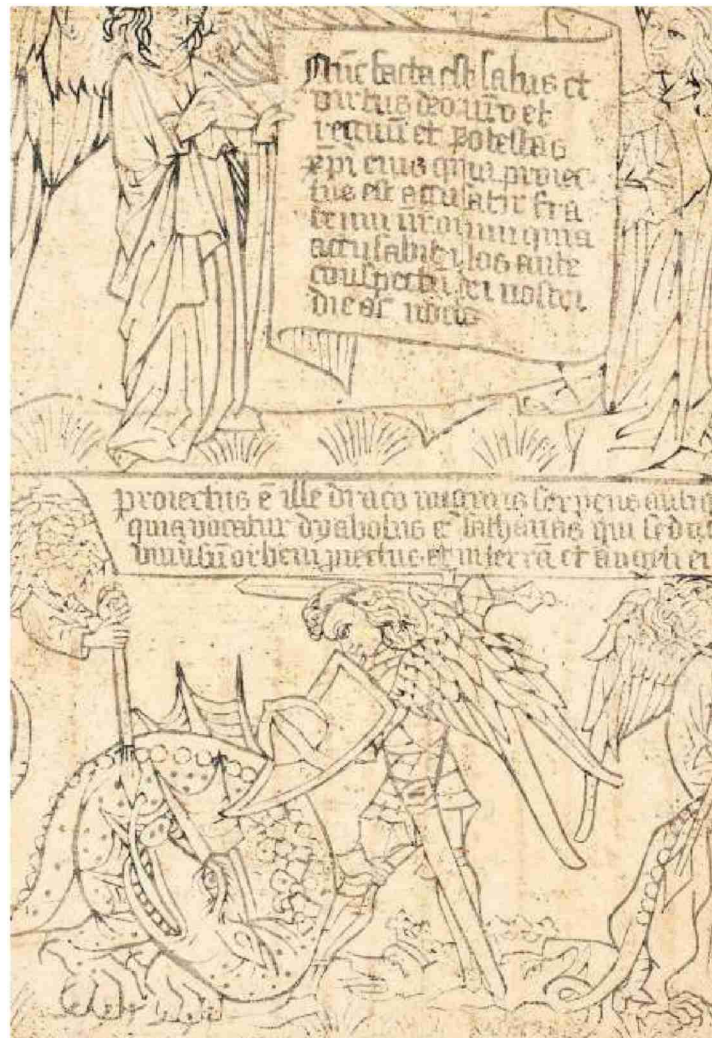 Nūc facta est salus et
virtus deo nr̄o et
regnū et potestas
xp̄i eius quia proiec
tus est accusator fra
trum nr̄orum qui
accusabat illos ante
conspectū dei nostri
die ac nocte
proiectus ē ille draco magnus serpens antiq
qui vocatur dyabolus et sathanas qui seduc
unīusū orbem piectus est in terrā et angeli ei